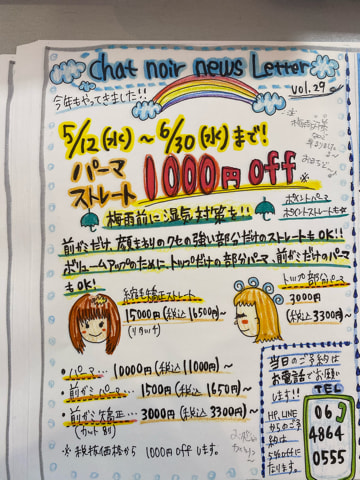 chat noir news Letter
vol.29
今年もやってきました!!
5/12(水)～6/30(水)まで!
パーマ
ストレート
1000円off※
ポイントパーマ
ポイントストレートも☆
梅雨前に湿気対策を!!
前がみだけ、顔まわりのクセの強い部分だけのストレートもOK!!
ボリュームアップのために、トップだけの部分パーマ、前がみだけのパーマ
もOK!
縮毛矯正ストレート
15000円(税込16500円)～
(リタッチ)
トップ部分パーマ
3000円
(税込3300円)～
・パーマ… 10000円(税込11000円)～
・前がみパーマ… 1500円(税込1650円)～
・前がみ矯正… 3000円(税込3300円)～
(カット別)
※税抜価格から1000円offします。
当日のご予約は
お電話でお願い
します!!
TEL
06
4864
0555
HP,LINE
からのご予
約は